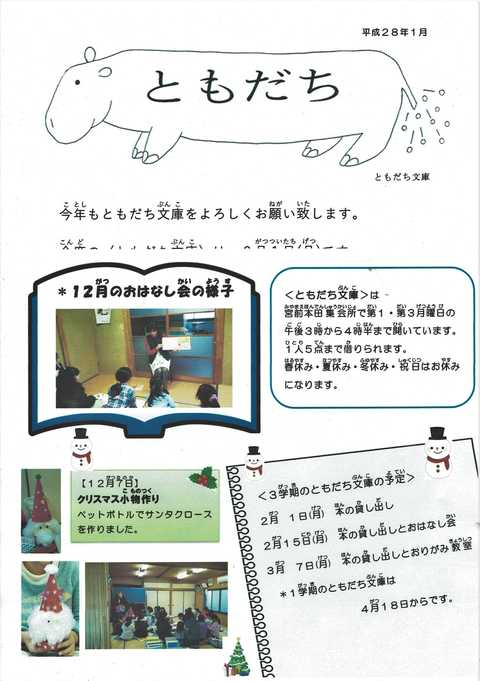 平成28年1月
ともだち
ともだち文庫
今年もともだち文庫をよろしくお願い致します。
*12月のおはなし会の様子
<ともだち文庫>は
宮前本田集会所で第1・第3月曜日の
午後3時から4時半まで開いています。
1人5点まで借りられます。
春休み・夏休み・冬休み・祝日はお休み
になります。
【12月7日】
クリスマス小物作り
ペットボトルでサンタクロース
を作りました。
<3学期のともだち文庫の予定>
2月 1日(月) 本の貸し出し
2月15日(月) 本の貸し出しとおはなし会
3月 7日(月) 本の貸し出しとおりがみ教室
*1学期のともだち文庫は
4月18日からです。